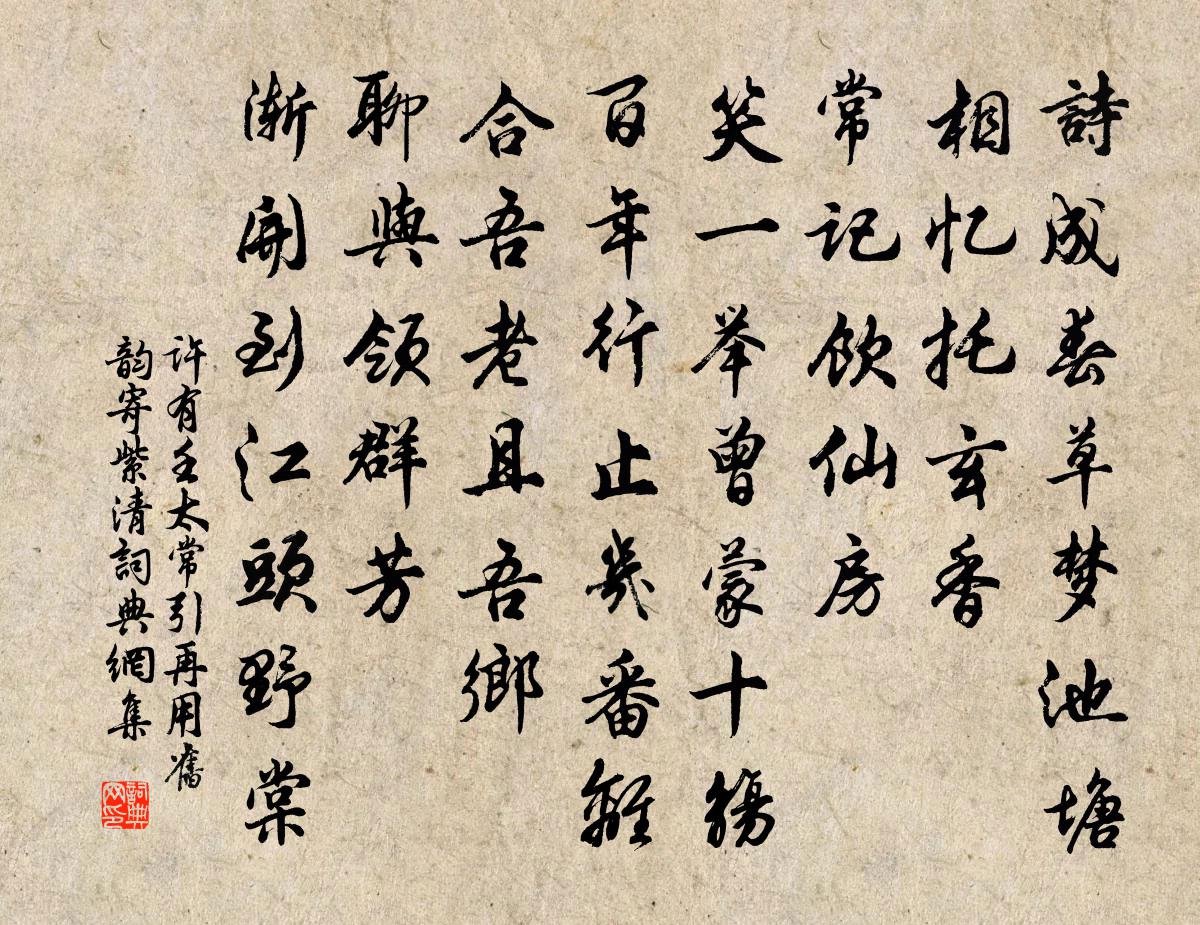 詩成春草梦池塘
相忆托玄香
常记飲仙房
笑一举曾蒙十觴
百年行止幾番離
合吾老且吾鄉
聊與領群芳
漸開到江頭野棠
许有壬太常引再用舊
韵寄紫清詞典網集
詞典网印